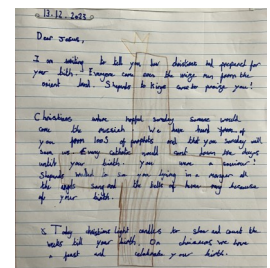 13.12.2023
Dear Jesus,
I am writing to tell you how christians prepared for
your birth. Everyone came even the wise men from the
orient land. Shepards to kings came to praise you!
Christians where hopeful someday someone would
come the messiah. We have heard from of
you from loads of prophets and that you someday will
save us. Every catholic would count down the days
until your birth. You were
Shepards walked in to see you lying in a manger all
the angels sang and the bells of heaven rang because
of your birth.
Today christians light candles to show and count the
weeks till your birth. On christmas we have
a feast and celebrate your birth.